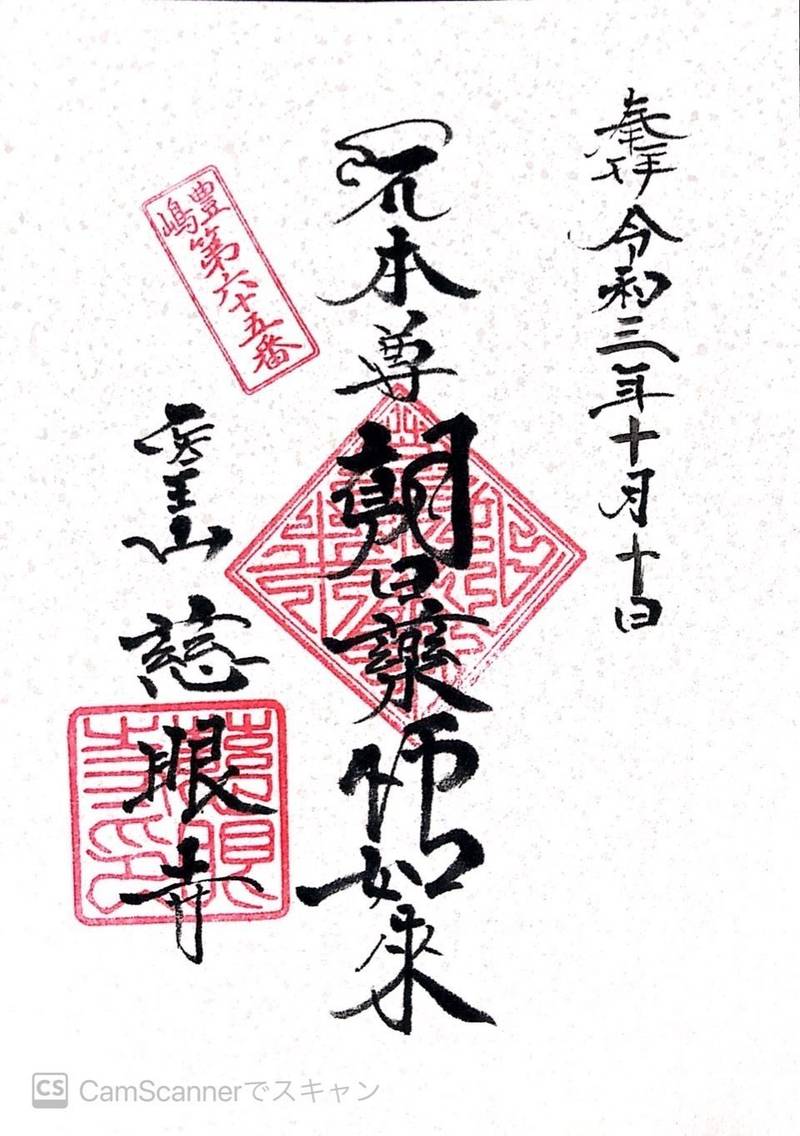 奉拝 令和三年十月十日
本尊 朝日薬師如来
豊嶋
第六十五番
山 慈眼寺
慈眼寺印
CS CamScannerでスキャン